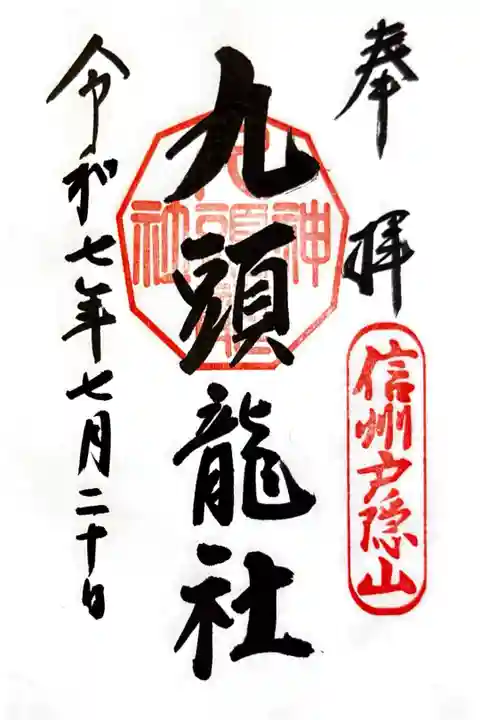 奉拝
信州戸隠山
九頭龍社
九頭龍神社
令和七年七月二十日